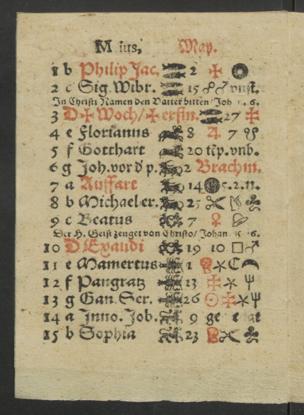 M ius, May.
1 b Philip Jac. 2
2 c Sig. Wibr. 15
In Christi Namen den Vatter bitten/ Joh. 16.
3 D Woch/ 27
4 e Florianus 8 7
5 f Gotthart 20 vnb.
6 g Joh. vor d' p. 2 Brachm.
7 a Auffart 14
8 b Michael er. 25
9 c Beatus 7
Der H. Geist zeuget von Christo/ Johan. 15. 16.
10 D Exaudi 19 10
11 e Mamertus 1
12 f Pangratz 13
13 g Gan. Ser. 26
14 a Inno. Job. 9
15 b Sophia 23